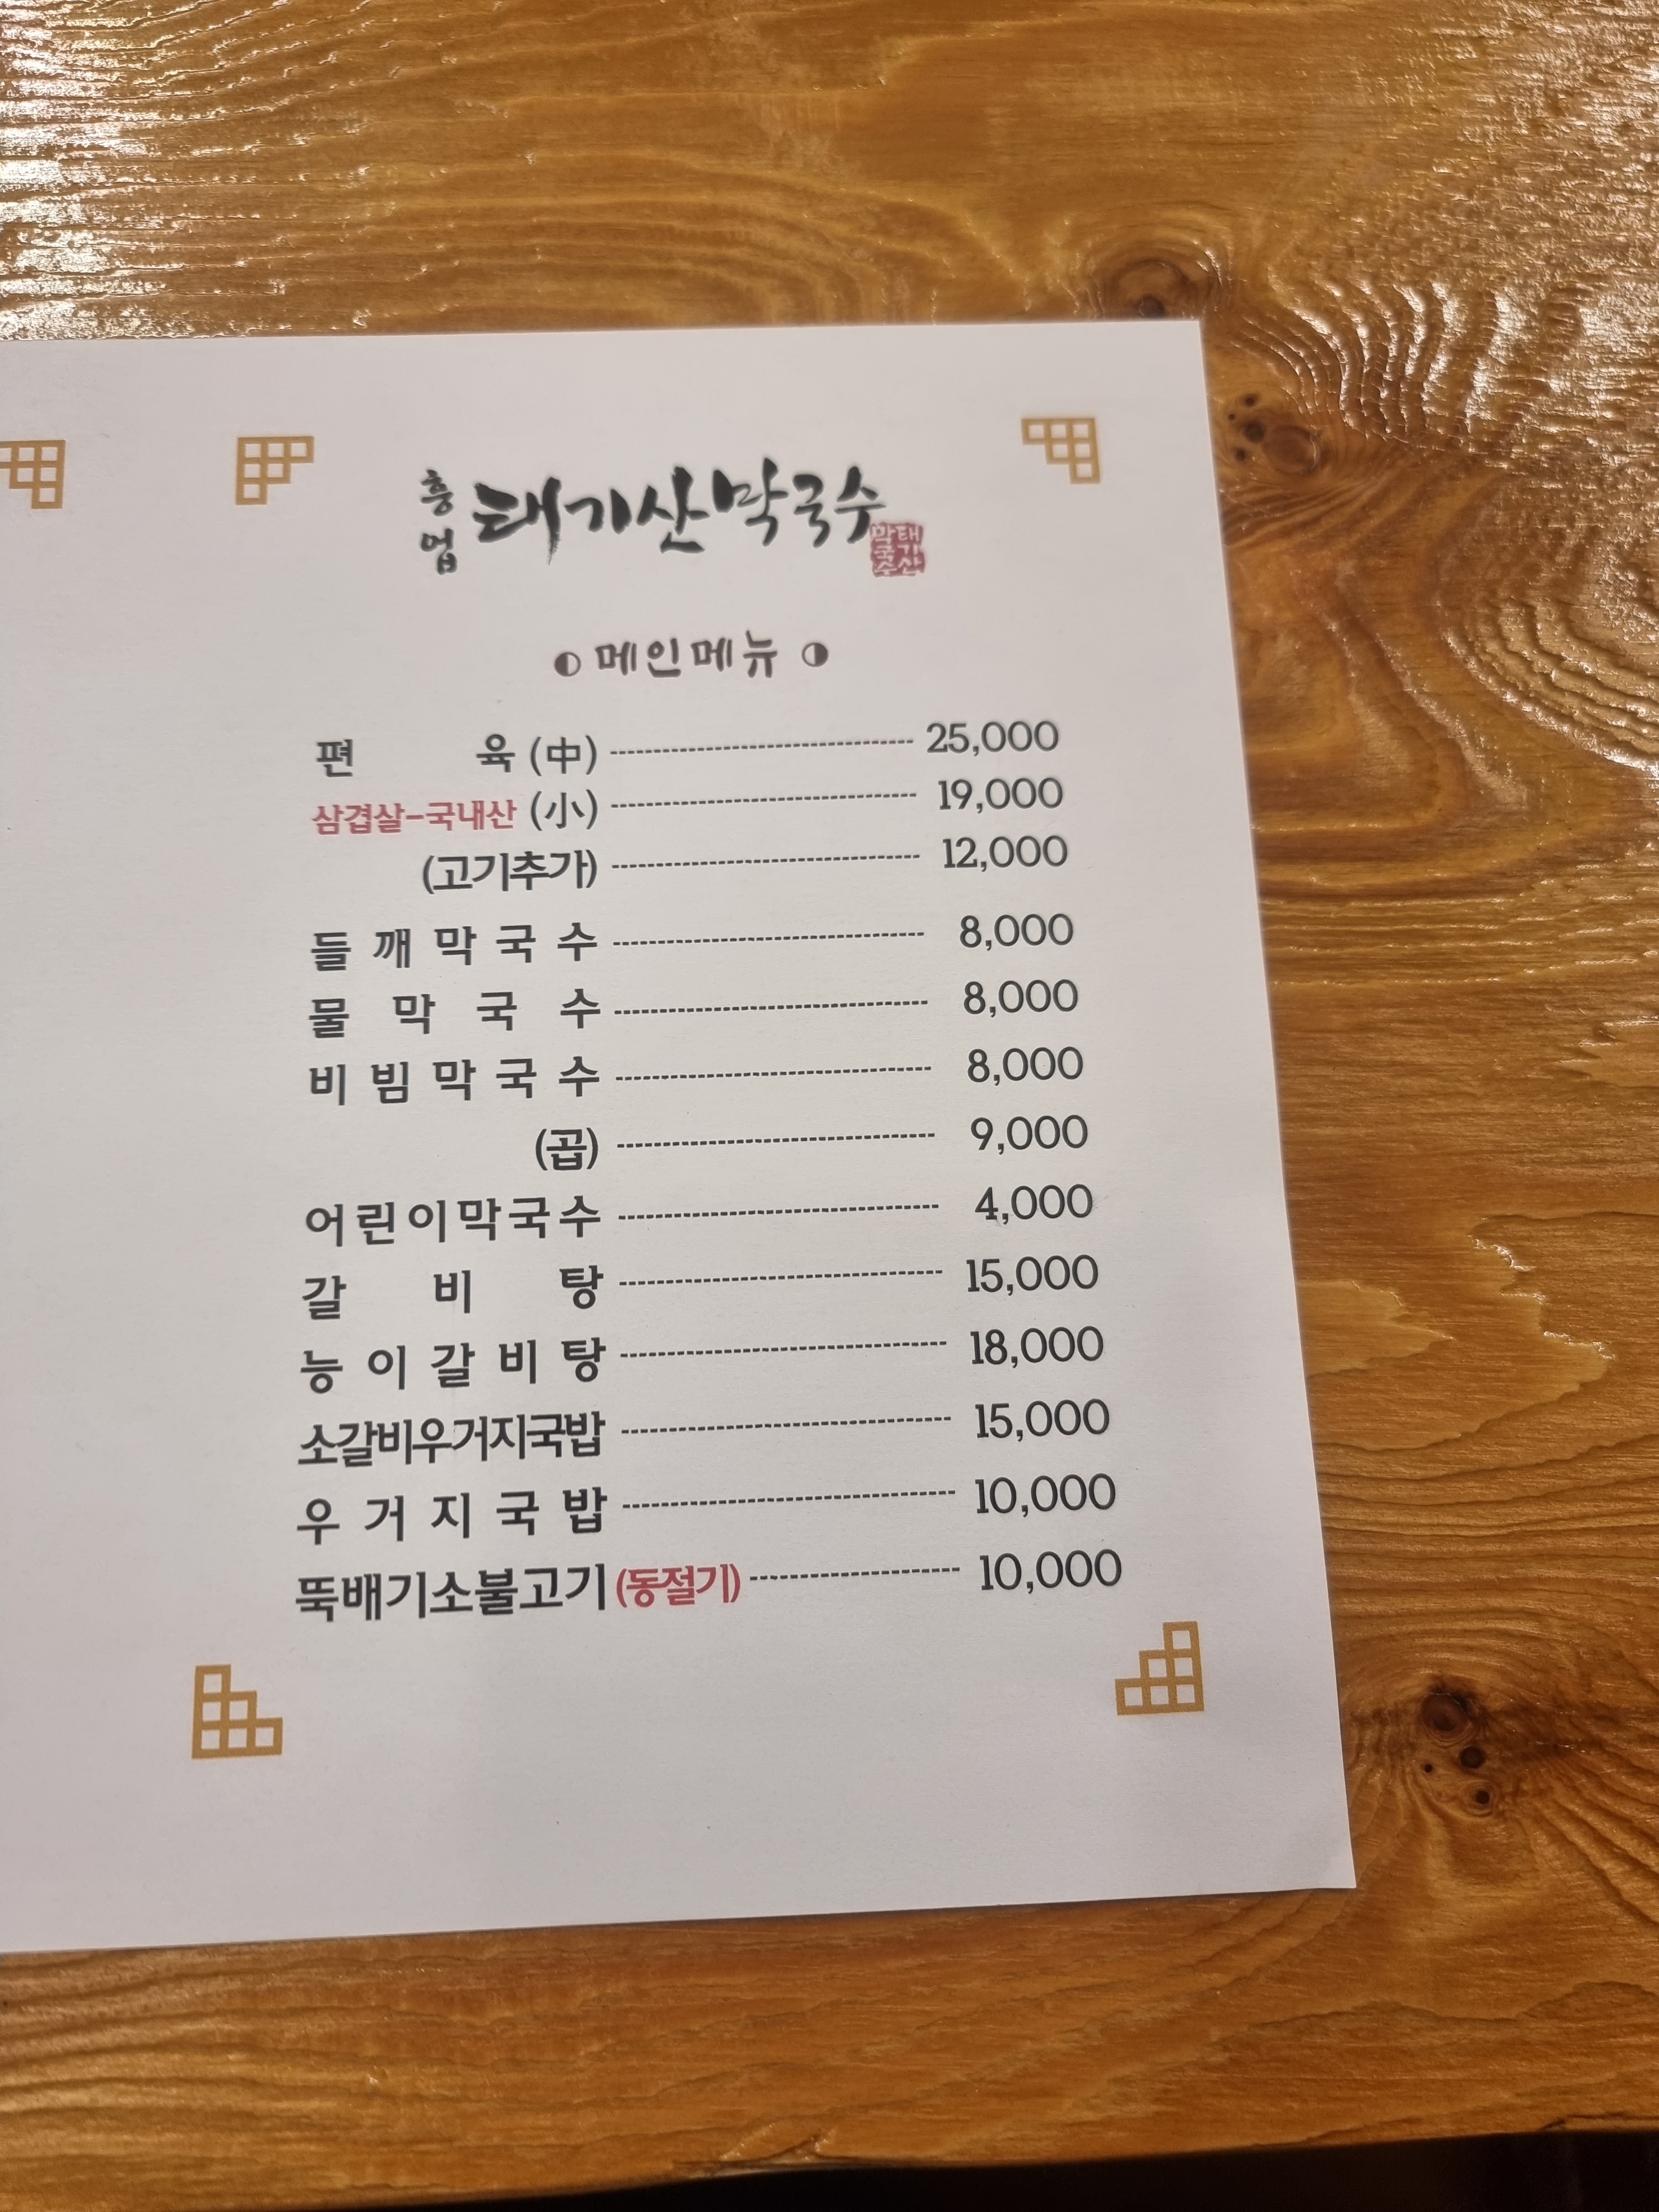 흥업 태기산막국수
태기산
막국수
메인메뉴
편 육 (中) 25,000
삼겹살-국내산 (小) 19,000
(고기추가) 12,000
들깨막국수 8,000
물막국수 8,000
비빔막국수 8,000
(곱) 9,000
어린이막국수 4,000
갈비탕 15,000
능이갈비탕 18,000
소갈비우거지국밥 15,000
우거지국밥 10,000
뚝배기소불고기(동절기) 10,000